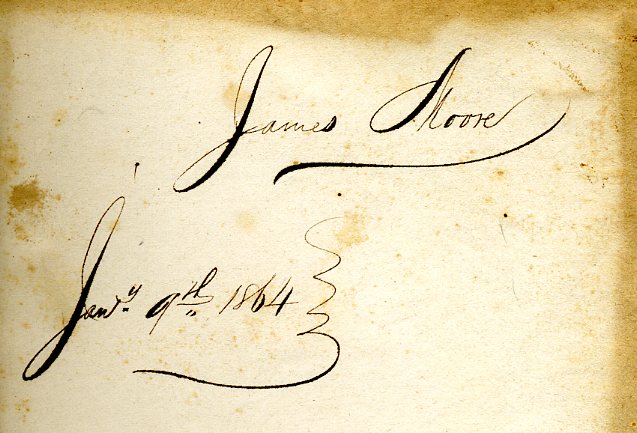 James Moore
Jany. 9th 1864